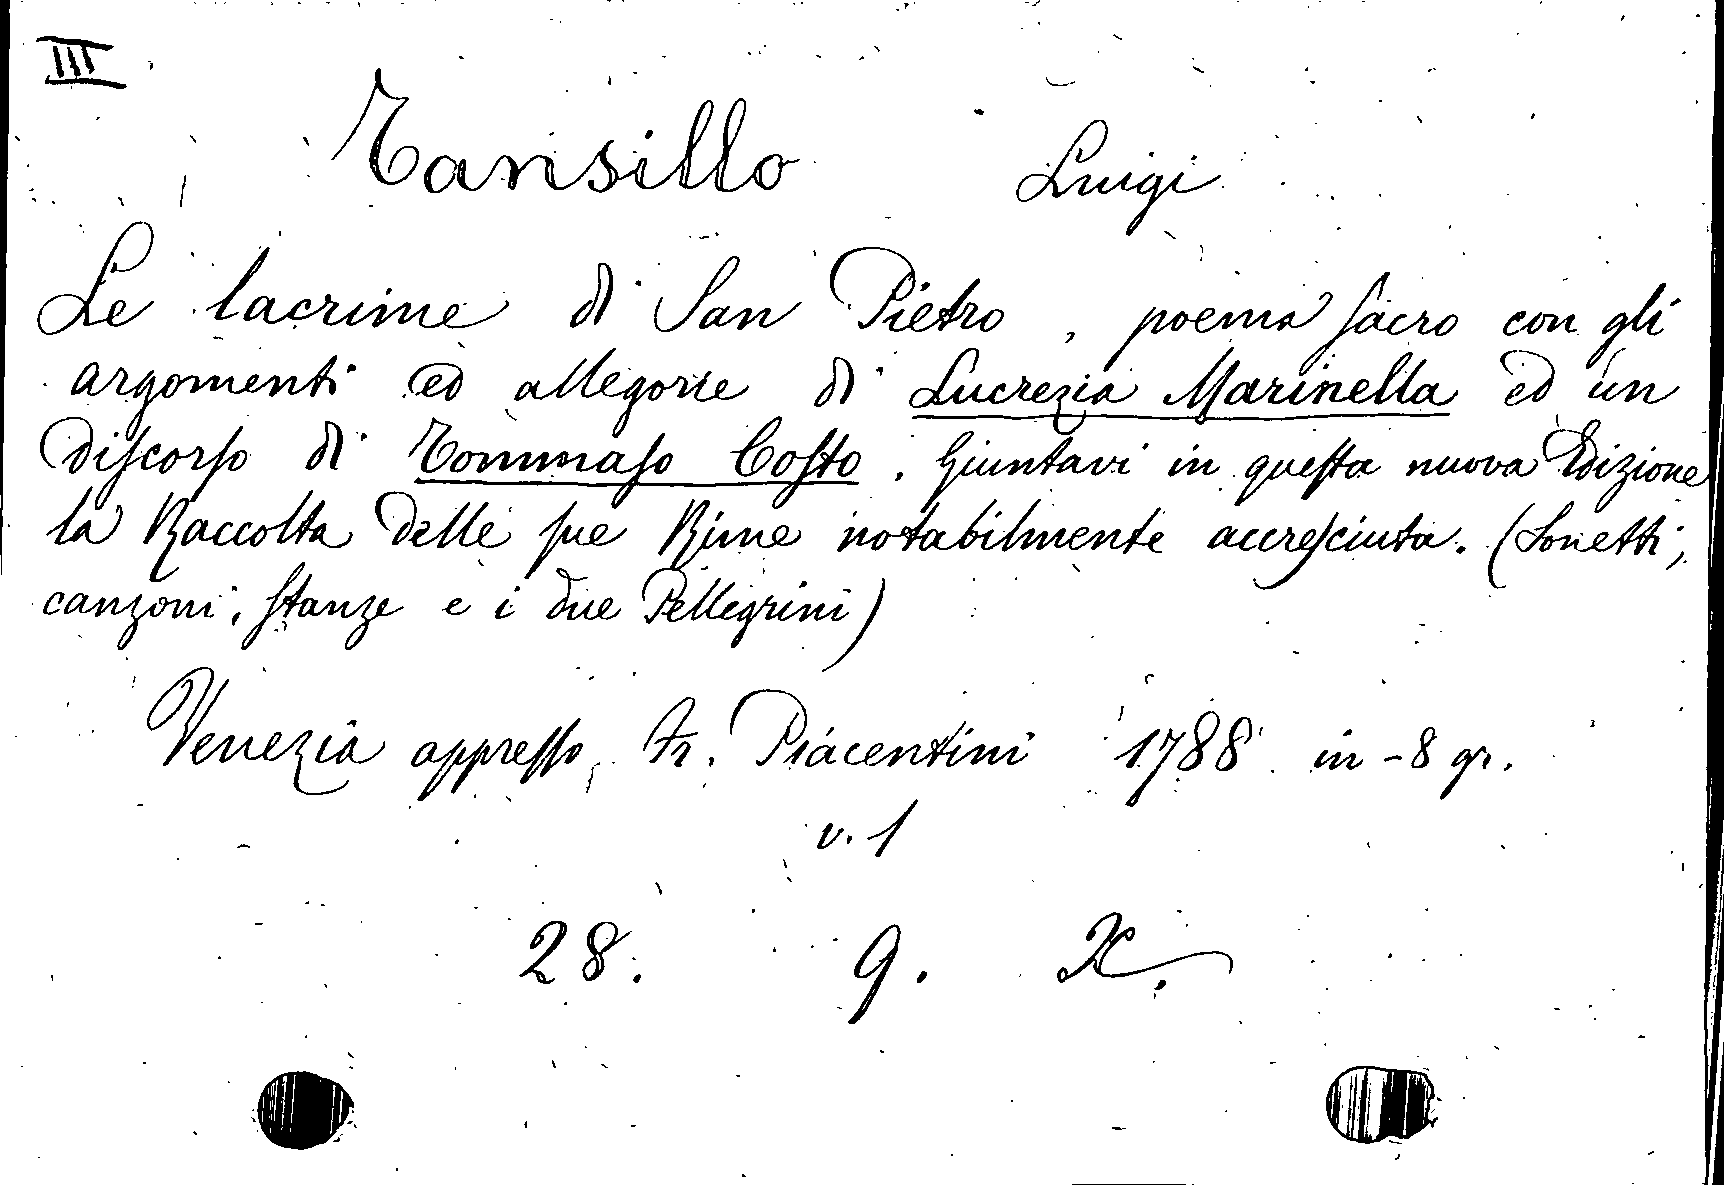 III
Tansillo Luigi
Le lacrime di San Pietro, poema sacro con gli
argomenti ed allegorie di Lucrezia Marinella ed un
discorso di Tommaso Costo. Giuntavi in questa nuova Edizione
la Raccolta delle sue Rime notabilmente accresciuta. (Sonetti,
canzoni, stanze e i due Pellegrini)
Venezia appresso Fr. Piacentini 1788 in-8 gr.
v. 1
28. 9. X.